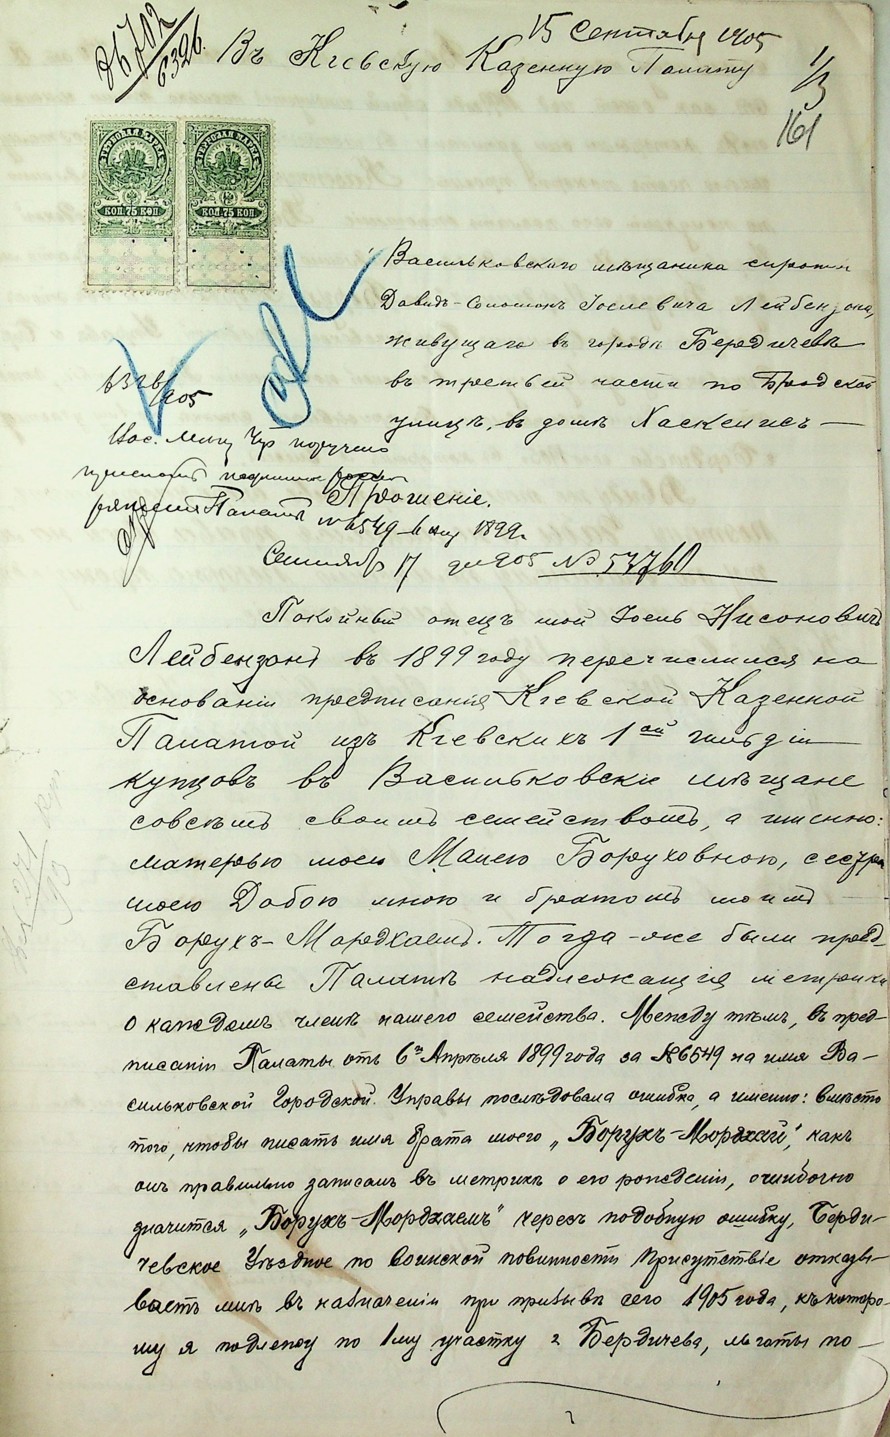 15 Сентября 1905
26702
6326.
Въ Кіевскую Казенную Палату
1/3
161
ГЕРБОВАЯ МАРКА ГЕРБОВАЯ МАРКА
КОП. 75 КОП КОП. 75 КОП
Васильковскаго мѣщанина сироты
Давидъ-Соломонъ Іоселевича Лейбензона,
живущаго въ городѣ Бердичевѣ
въ третьей части по Бродской
улицѣ, въ домѣ
905
поручено
Палаты № 6549 1899г.
Прошеніе.
Сентября 17 дня 905 № 53760
Покойный отецъ мой Іосель Нисоновичъ
Лейбензонъ въ 1899 году перечислился на
основаніи предписанія Кіевской Казенной
Палатой изъ Кіевскихъ 1ой гильдіи
купцовъ въ Васильковскіе мѣщане
совсѣмъ своимъ семействомъ, а именно:
матерью моею Манею Боруховною, сестрою
моею Добою мною и братомъ моимъ
Борухъ-Мордхаемъ. Тогда-же были пред-
ставлены Палатѣ надлежащія метрики
о каждомъ членѣ нашего семейства. Между тѣмъ, въ пред-
писаніи Палаты отъ 6го Апрѣля 1899 года за №6549 на имя Ва-
сильковской Городской Управы послѣдовала ошибка, а именно: вмѣсто
того, чтобы писать имя брата моего „Борухъ-Мордхай", какъ
онъ правильно записанъ въ метрикѣ о его рожденіи, ошибочно
значится „Борухъ-Мордхаемъ" черезъ подобную ошибку, Берди-
чевское Уѣздное по Воинской повинности Присутствіе отказы-
ваетъ мнѣ въ назначеніи при призывѣ сего 1905 года, къ которо-
му я подлежу по 1му участку г Бердичева, льготы по-